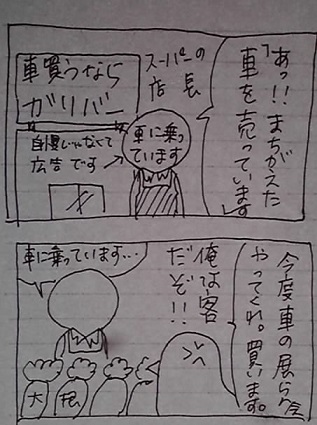 「あっ!!まちがえた
車を売っています」
スーパーの
店長
車買うなら
ガリバー
車に乗っ
ています
自慢じゃなくて
広告です
今度車の展らん会
やってくれ。買います。
俺は客
だぞ!!
車に乗っています…
大
根